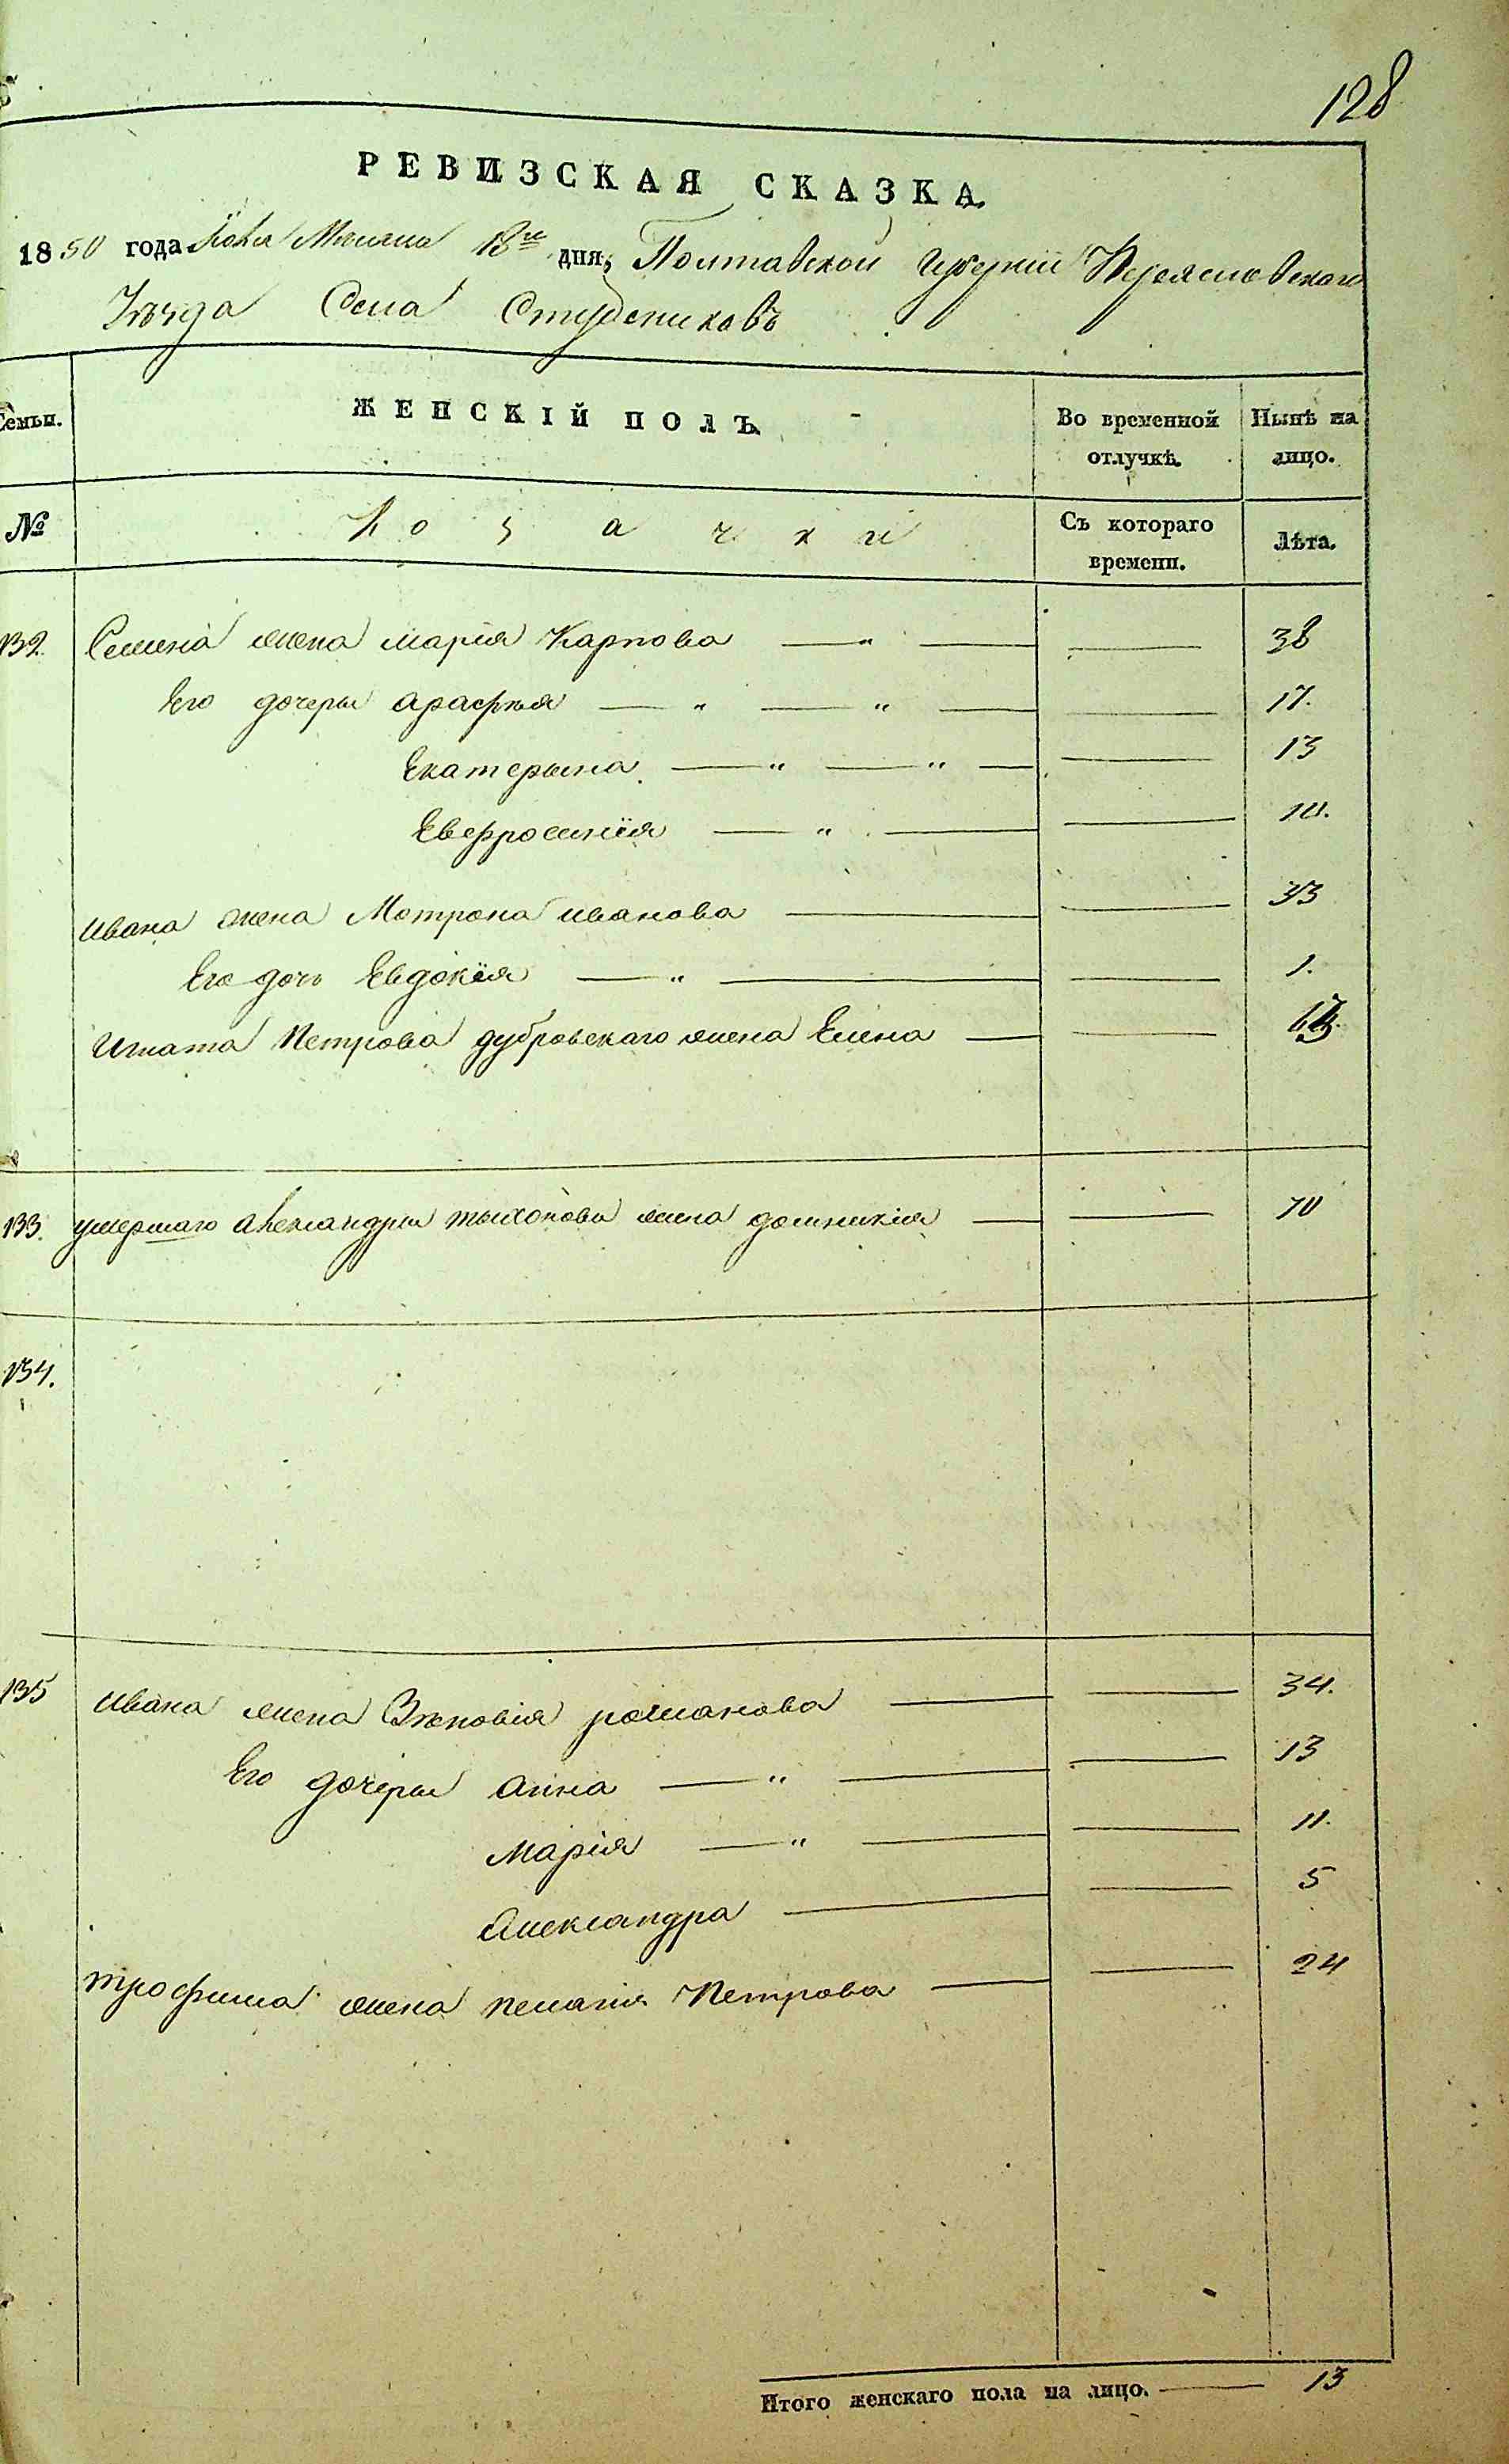 128
РЕВИЗСКАЯ СКАЗКА.
1850 года Июня Месяца 13го дня, Полтавской Губернии Переяславского
Уезда Села Студениковъ
Семьи. ЖЕНСКІЙ ПОЛЪ. Во временной отлучкѣ. Нынѣ на лицо.
№ Козачки Съ котораго времени. Лѣта.
132. Семена жена Марія Карпова — " — — 38
Его дочеры Арафья — " — " — — 17.
Екатерына — " — " — — 13
Евфросинія — " — — 10.
Ивана жена Мотрона Иванова — — 33
Его дочь Евдокія — " — — 1.
Петрова Дубровскаго жена Елена — —
133. умершаго Александры Тыхонова жена Домникія — — 70
134.
135 Ивана жена Зѣновія Романова — — 34.
Его дочеры Анна — " — — 13
Марія — " — — 11.
Александра — — 5
Трофима жена Пелагія Петрова — — 24
Итого женскаго пола на лицо. — 13